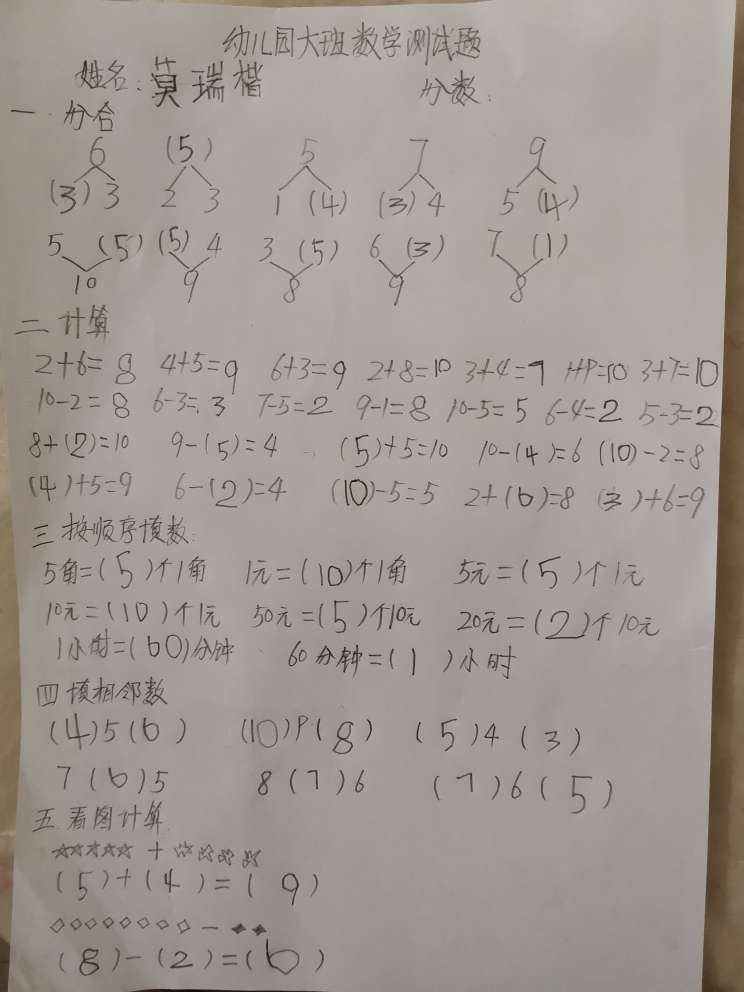 幼儿园大班数学测试题
姓名：莫瑞楷 分数：
一 分合
6 (5) 5 7 9
(3) 3 2 3 1 (4) (3) 4 5 (4)
5 (5) (5) 4 3 (5) 6 (3) 7 (1)
10 9 8 9 8
二 计算
2+6=8 4+5=9 6+3=9 2+8=10 3+4=7 1+9=10 3+7=10
10-2=8 6-3=3 7-5=2 9-1=8 10-5=5 6-4=2 5-3=2
8+(2)=10 9-(5)=4 (5)+5=10 10-(4)=6 (10)-2=8
(4)+5=9 6-(2)=4 (10)-5=5 2+(6)=8 (3)+6=9
三 按顺序填数：
5角=(5)个1角 1元=(10)个1角 5元=(5)个1元
10元=(10)个1元 50元=(5)个10元 20元=(2)个10元
1小时=(60)分钟 60分钟=(1)小时
四 填相邻数
(4)5(6) (10)9(8) (5)4(3)
7(6)5 8(7)6 (7)6(5)
五 看图计算
☆☆☆☆☆ + ☆☆☆☆
(5)+(4)=(9)
◇◇◇◇◇◇◇◇ - ◆◆
(8)-(2)=(6)